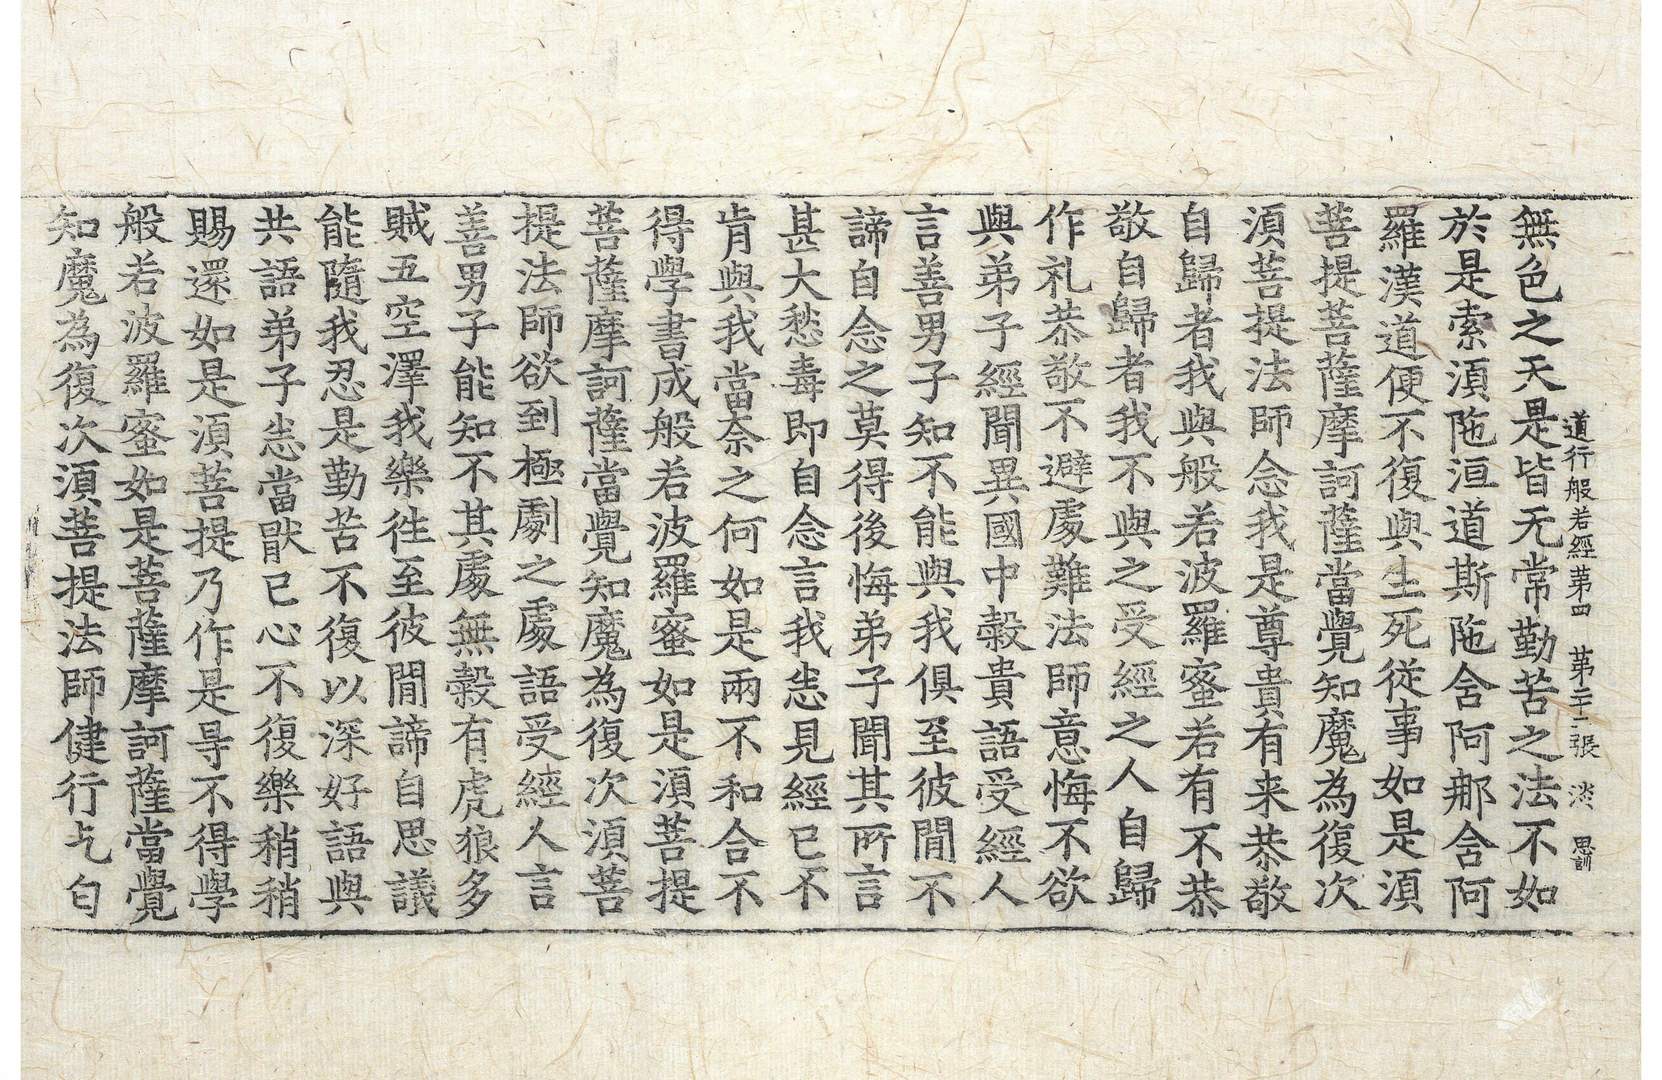 道行般若經苐四 苐二十二張 淡 思訓
無色之天是皆无常勤苦之法不如
於是索湏陁洹道斯陁含阿那含阿
羅漢道便不復與生死從事如是湏
菩提菩薩摩訶薩當覺知魔為復次
湏菩提法師念我是尊貴有来恭敬
自歸者我與般若波羅蜜若有不恭
敬自歸者我不與之受經之人自歸
作礼恭敬不避處難法師意悔不欲
與弟子經聞異國中穀貴語受經人
言善男子知不能與我俱至彼間不
諦自念之莫得後悔弟子聞其所言
甚大愁毒即自念言我悉見經已不
肯與我當奈之何如是兩不和合不
得學書成般若波羅蜜如是湏菩提
菩薩摩訶薩當覺知魔為復次湏菩
提法師欲到極劇之處語受經人言
善男子能知不其處無穀有虎狼多
賊五空澤我樂往至彼間諦自思議
能隨我忍是勤苦不復以深好語與
共語弟子悉當猒已心不復樂稍稍
賜還如是湏菩提乃作是㝵不得學
般若波羅蜜如是菩薩摩訶薩當覺
知魔為復次湏菩提法師健行乞匃